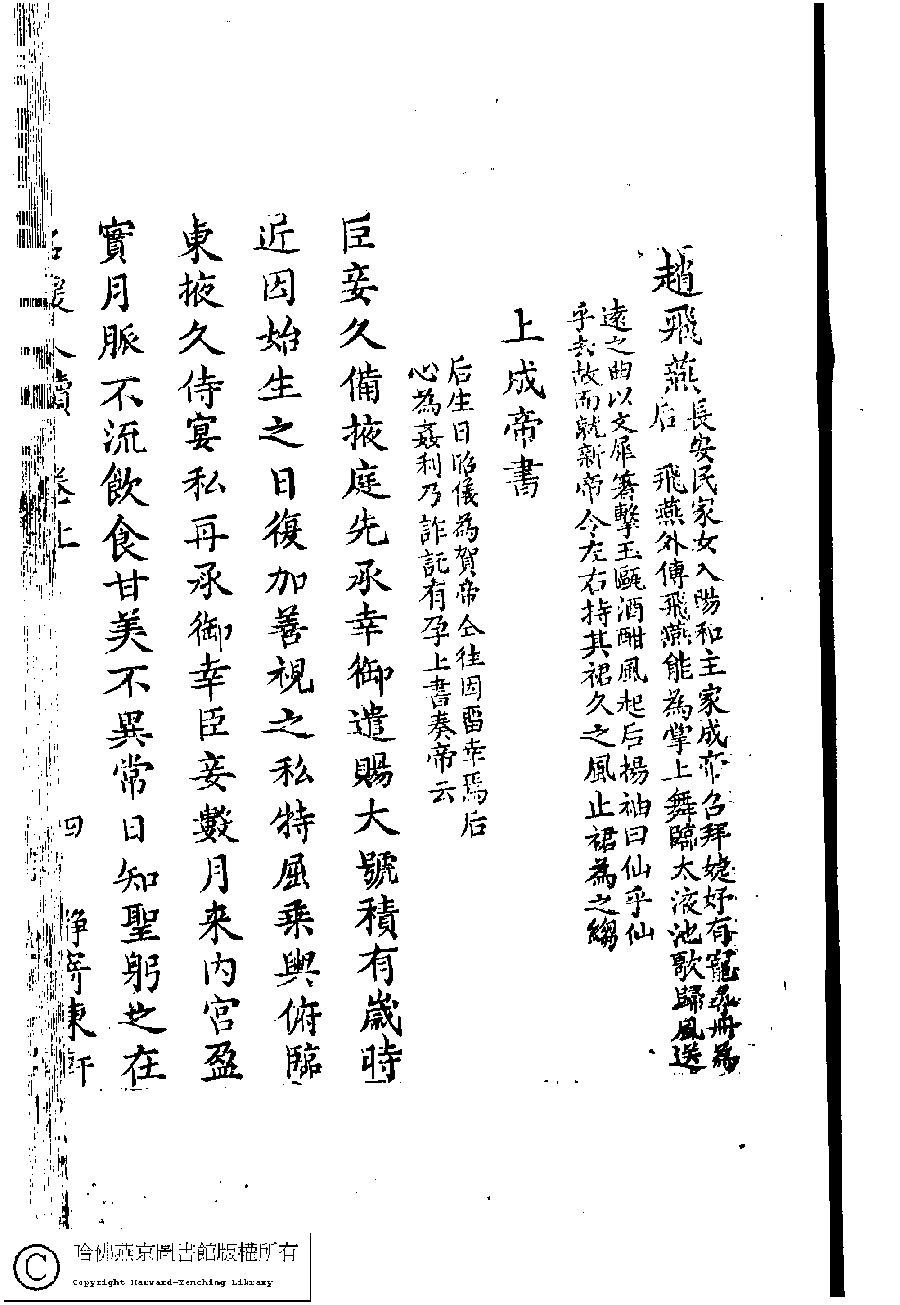 趙飛燕
長安民家女入陽和主家成帝召拜婕妤有寵尋冊為
后　飛燕外傳飛燕能為掌上舞臨太液池歌歸風送
遠之曲以文犀簪擊玉甌酒酣風起后揚袖曰仙乎仙
乎去故而就新帝令左右持其裙久之風止裙為之縐
上成帝書
后生日昭儀為賀帝仝往因畱幸焉后
心為姦利乃詐託有孕上書奏帝云
臣妾久備掖庭先承幸御遣賜大號積有歲時
近因始生之日復加善視之私特屈乘輿俯臨
東掖久侍宴私再承御幸臣妾數月來內宮盈
實月脈不流飲食甘美不異常日知聖躬之在
名媛尺牘　卷上　四　淨寄東軒
哈佛燕京圖書館版權所有
Copyright Harvard-Yenching Library